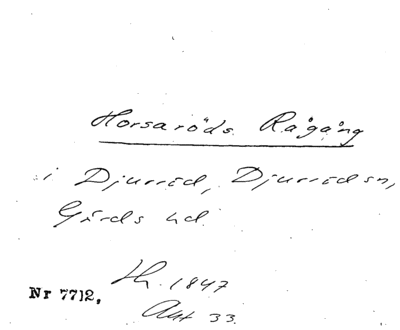 Horsaröds Rågång
i Djurröd, Djurröds sn,
Gärds hd.
Lh. 1847
Nr 7712,
Akt 33.